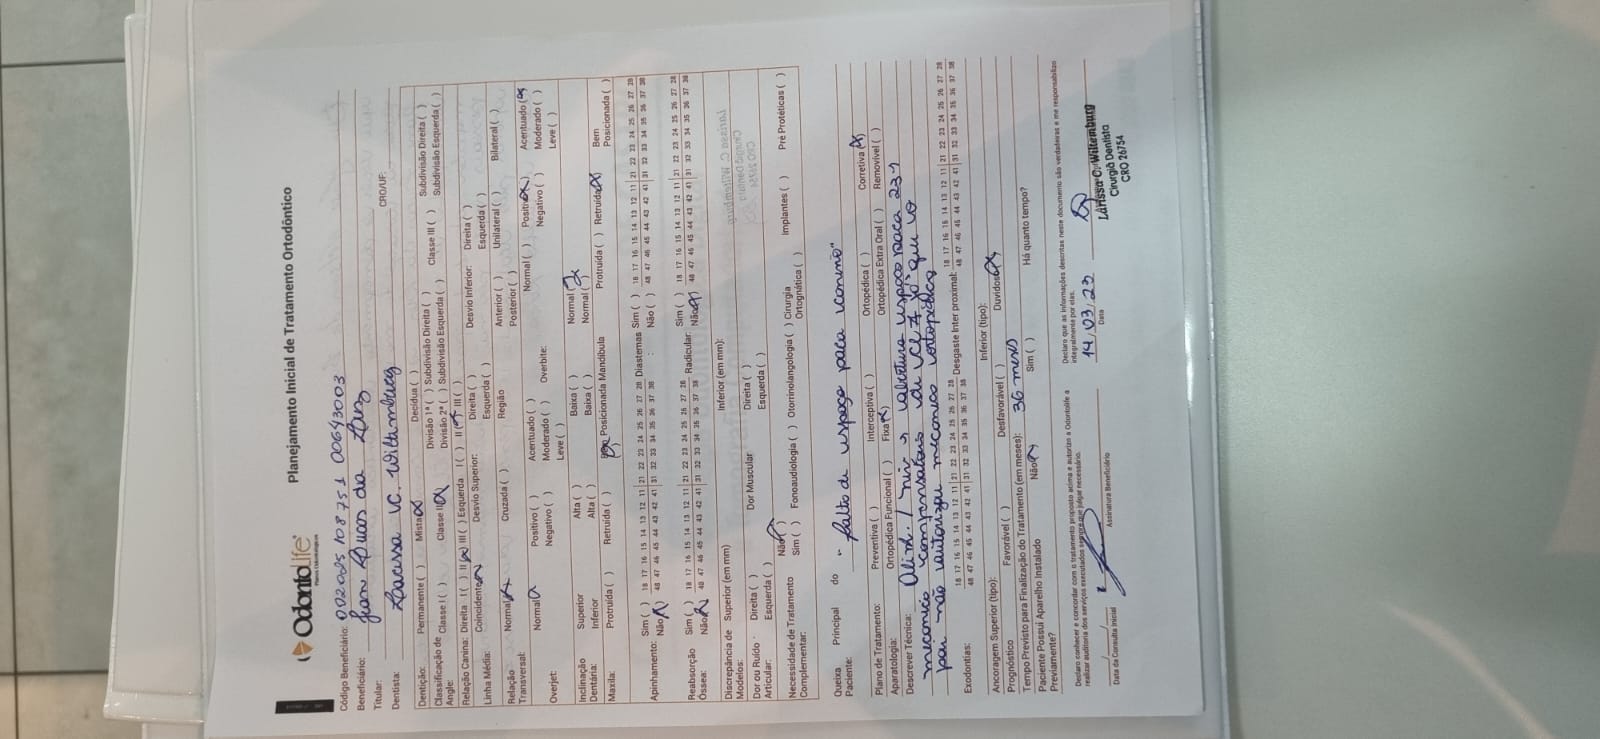 OdontoLife
Planos Odontológicos
Planejamento Inicial de Tratamento Ortodôntico
Código Beneficiário: 002025108751 00643003
Beneficiário: Jean Lucas da
Titular:
Dentista: Larissa C. Wiltemburg CRO/UF:
Dentição: Permanente ( ) Mista (x) Decídua ( )
Classificação de Angle: Classe I ( ) Classe II (x) Divisão 1ª ( ) Subdivisão Direita ( ) Classe III ( ) Subdivisão Direita ( )
Divisão 2ª ( ) Subdivisão Esquerda ( ) Subdivisão Esquerda ( )
Relação Canina: Direita: I ( ) II (x) III ( ) Esquerda I ( ) II (x) III ( )
Linha Média: Coincidente (x) Desvio Superior: Direita ( ) Esquerda ( ) Desvio Inferior: Direita ( ) Esquerda ( )
Relação Transversal: Normal (x) Cruzada ( ) Região Anterior ( ) Posterior ( ) Unilateral ( ) Bilateral ( )
Overjet: Normal (x) Positivo ( ) Negativo ( ) Acentuado ( ) Moderado ( ) Leve ( ) Overbite: Normal ( ) Positivo (x) Negativo ( ) Acentuado (x) Moderado ( ) Leve ( )
Inclinação Dentária: Superior Alta ( ) Baixa ( ) Normal (x)
Inferior Alta ( ) Baixa ( ) Normal (x)
Maxila: Protruída ( ) Retruída ( ) Bem Posicionada (x) Mandíbula Protruída ( ) Retruída (x) Bem Posicionada ( )
Apinhamento: Sim ( ) 18 17 16 15 14 13 12 11 | 21 22 23 24 25 26 27 28 Diastemas Sim ( ) 18 17 16 15 14 13 12 11 | 21 22 23 24 25 26 27 28
Não (x) 48 47 46 45 44 43 42 41 | 31 32 33 34 35 36 37 38 : Não ( ) 48 47 46 45 44 43 42 41 | 31 32 33 34 35 36 37 38
Reabsorção Óssea: Sim ( ) 18 17 16 15 14 13 12 11 | 21 22 23 24 25 26 27 28 Radicular: Sim ( ) 18 17 16 15 14 13 12 11 | 21 22 23 24 25 26 27 28
Não (x) 48 47 46 45 44 43 42 41 | 31 32 33 34 35 36 37 38 Não (x) 48 47 46 45 44 43 42 41 | 31 32 33 34 35 36 37 38
Discrepância de Modelos: Superior (em mm) Inferior (em mm):
Dor ou Ruído Articular: Direita ( ) Esquerda ( ) Dor Muscular Direita ( ) Esquerda ( )
Necessidade de Tratamento Complementar: Não (x) Sim ( ) Fonoaudiologia ( ) Otorrinolangologia ( ) Cirurgia Ortognática ( ) Implantes ( ) Pré Protéticas ( )
Queixa Principal do Paciente: "falta de espaço para canino"
Plano de Tratamento: Preventiva ( ) Interceptiva ( ) Ortopédica ( ) Corretiva (x)
Aparatologia: Ortopédica Funcional ( ) Fixa (x) Ortopédica Extra Oral ( ) Removível ( )
Descrever Técnica: Alinh. / niv → abertura espaço para 23 →
mecanica compensatoria de CL II já que o
pai não autorizou mecanica ortopédica
Exodontias: 18 17 16 15 14 13 12 11 | 21 22 23 24 25 26 27 28 Desgaste Inter proximal: 18 17 16 15 14 13 12 11 | 21 22 23 24 25 26 27 28
48 47 46 45 44 43 42 41 | 31 32 33 34 35 36 37 38 48 47 46 45 44 43 42 41 | 31 32 33 34 35 36 37 38
Ancoragem Superior (tipo): Inferior (tipo):
Prognóstico Favorável ( ) Desfavorável ( ) Duvidoso (x)
Tempo Previsto para Finalização do Tratamento (em meses): 36 meses
Paciente Possui Aparelho Instalado Previamente? Não (x) Sim ( ) Há quanto tempo?
Declaro conhecer e concordar com o tratamento proposto acima e autorizo a Odontolife a realizar auditoria dos serviços executados sempre que julgar necessário.
Declaro que as informações descritas neste documento são verdadeiras e me responsabilizo integralmente por elas.
__/__/__ 14/03/23
Data da Consulta Inicial Assinatura Beneficiário Data
Larissa C. Wiltemburg
Cirurgiã Dentista
CRO 26754